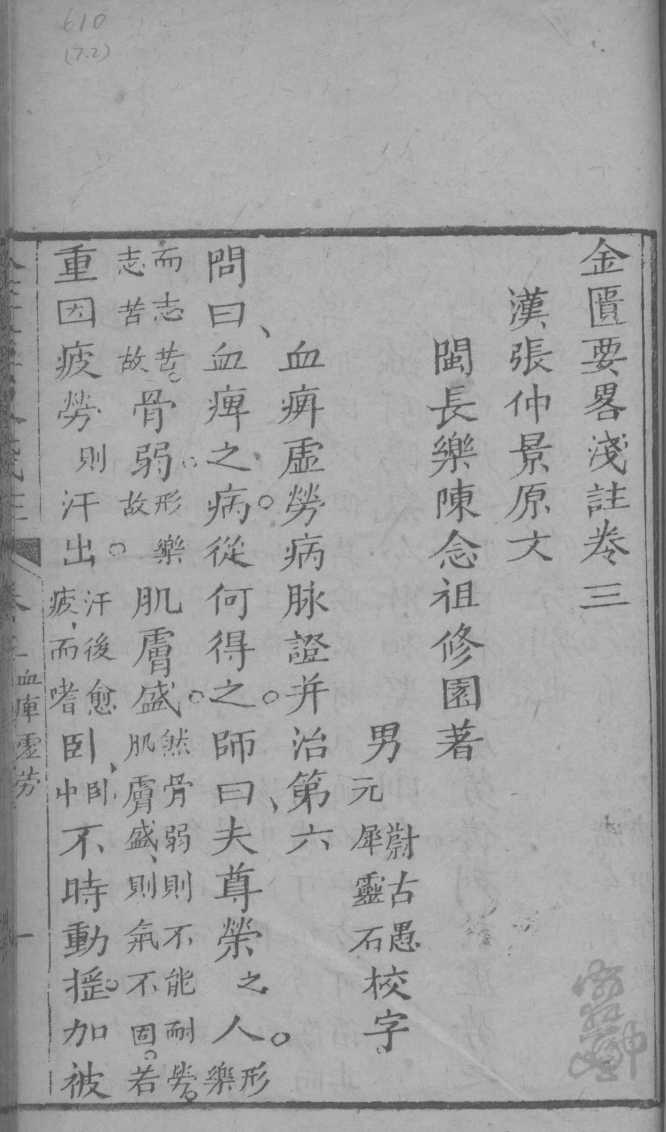 610
(7.2)
金匱要畧淺註卷三
漢張仲景原文
閩長樂陳念祖修園著
男元犀靈石蔚古愚校字
血痹虛勞病脉證并治第六
問曰、血痺之病。從何得之。師曰、夫尊榮之人。形樂
而志苦。志苦故骨弱。形樂故肌膚盛。然骨弱則不能耐勞。肌膚盛、則氣不固。若
重因疲勞則汗出。汗後愈疲、而嗜臥、臥中不時動搖。加被
血痺虛勞
一